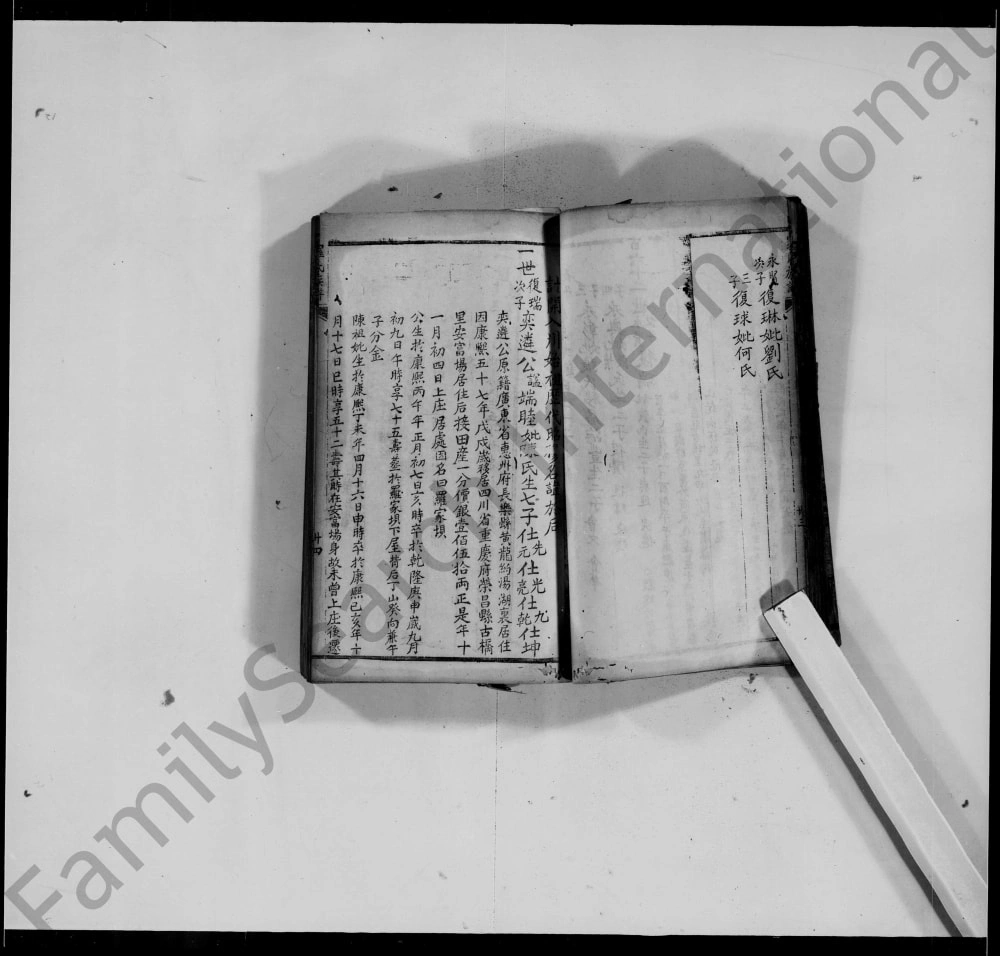 永賢次子復琳妣劉氏
三子復球妣何氏
一世復瑞次子奕遴公諡端睦妣陳氏生七子仕元仕先仕亮仕光仕乾仕九仕坤
奕遴公原籍廣東省惠州府長樂縣黃龍約湯湖裏居住
因康熙五十七年戊戌歲移居四川省重慶府榮昌縣古橋
里安富場居住后接田產一分價銀壹佰伍拾両正是年十
一月初四日上庄居處因名曰羅家垻
公生於康熙丙午年正月初七日亥時卒於乾隆庚申歲九月
初九日午時享七十五壽葬於羅家垻下屋背后丁山癸向兼午
子分金
陳祖妣生於康熙丁未年四月十六日申時卒於康熙己亥年六
月十七日巳時享五十二壽其時在安富場身故未曾上庄後遷
廿四
FamilySearch International